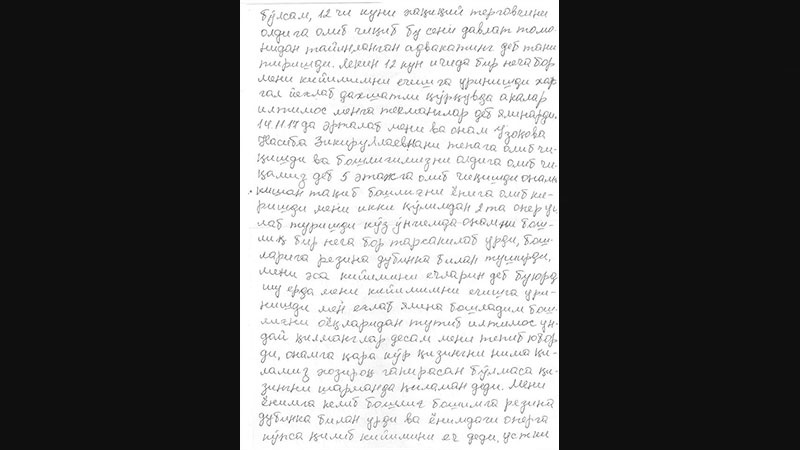 бўлсам, 12 чи куни хақиқий терговчини
олдига олиб чиқиб бу сени давлат томо-
нидан тайинланган адвакатинг деб тани
тиришди. Лекин 12 кун ичида бир неча бор
мени кийилимни ечишга уринишди хар
гал йеғлаб дахшатли қўрқувда акалар
илтимос менга текманглар деб ялинардим.
14.11.17 да эрталаб мени ва онам Узоқова
Насиба Зикируллаевнани тепага олиб чи-
қишди ва бошлиғимизни олдига олиб чи-
қамиз деб 5 этажга олиб чиқишди онамни
кишан тақиб бошлиғни ёнига олиб ки-
ришди мени икки қўлимдан 2 та опер уш-
лаб туришди кўз ўнгимда онамни бош-
лиқ бир неча бор тарсакилаб урди, бош-
ларига резина дубинка билан туширди,
мени эса кийимини ечларин деб буюрд
шу ерда мени кийилимни ечишга ури-
нишди мен еғлаб ялина бошладим бош-
лиғни оёқларидан тутиб илтимос ун-
дай қилманглар десам мени тепиб юбор-
ди, онамга қара кўр қизингни нима қи-
ламиз хозироқ гапирасан бўлмаса қи-
зингни шарманда қиламан деди. Мени
ёнимга келиб бошлиғ бошимга резина
дубинка билан урди ва ёнимдаги оперга
кўпса қилиб кийимини еч деди, устки